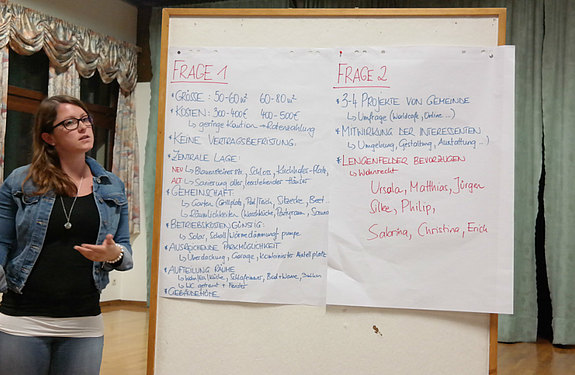 FRAGE 1
GRÖSSE: 50-60m² 60-80m²
KOSTEN: 300-400€ 400-500€
↳ geringe Kaution → Ratenzahlung
KEINE VERTRAGSBEFRISTUNG
ZENTRALE LAGE:
NEU ↳ Schloss,
ALT ↳ Sanierung alter, leerstehender Häuser
GEMEINSCHAFT
↳ Garten (Grillplatz, Sitzecke, Beet
↳ Räumlichkeiten (Waschküche, Sauna
BETRIEBSKOSTENGÜNSTIG:
↳ Solar, pumpe
AUSREICHENDE PARKMÖGLICHKEIT
↳ Überdachung, Garage,
AUFTEILUNG RÄUME
↳ Schlafzimmer, Bad + Wanne, Balkon
↳ WC getrennt + Fenster
GEBÄUDEHÖHE
FRAGE 2
3-4 PROJEKTE VON GEMEINDE
↳ Umfrage (Worldcafe, Online ...)
MITWIRKUNG DER INTERESSENTEN
↳ Umgebung, Gestaltung, Ausstattung ...)
LENGENFELDER BEVORZUGEN
↳ Wohnrecht
Ursula, Matthias, Jörgen
Silke, Philip,
Sabrina, Christina, Erich